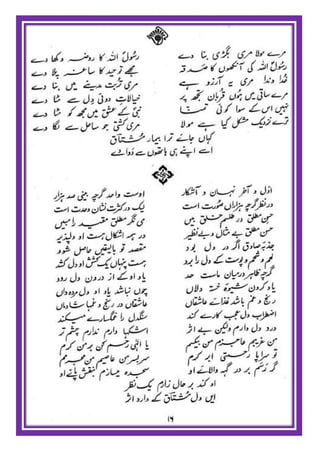 مرے مولا مری بگڑی بنا دے رسول اللہ کا روضہ دکھا دے
رسول اللہ کی آنکھوں کا صدقہ مجھے توحید کا ساغر پلا دے
خداوندا مری یہ آرزو ہے مری تربت مدینے میں بنا دے
مرے ساقی میں ہوں قربان تجھ پر خیالاتِ دوئی دل سے مٹا دے
نہیں اس کے سوا کوئی تمنا نبی کے عشق میں مجھ کو مٹا دے
ترے نزدیک مشکل کیا ہے مولا مری کشتی جو ساحل سے لگا دے
کہاں جائے ترا بیمار مشتاق
اسے اپنے ہی ہاتھوں سے دوا دے
اول و آخر نہان و آشکار اوست واحد گرچہ بینی صد ہزار
در نظر گرچہ ہزاراں صورت است لیک در کثرت نشان وحدت است
حسن مطلق در بیں می نگر مطلق مقید را بہیں
حسن مطلق بے مثال و بے نظیر در ہمہ اشکال ہست او دلپذیر
جذبۂ صادق اگر در دل بود مقصد تو بالیقیں حاصل شود
لحم و شحم و پوست کے دل را برد ہست پنہاں یک کشش او دل کشد
گرچہ ظاہر درمیان ماست حد یاد او کے از درون دل رود
یاد کردن شیوۂ دلاں چوں نباشد یاد او دل مردہ داں
رنج و غم باشد غذائے عاشقاں عاشقاں در رنج و غمہا شاداں
اضطراب دل عجب کارے کند سنگدل را غمگسارے میکند
درد دل دارم ولیکن بے اثر اشکہا دارم ندارم چشم تر
من غریبم عاجزم من بیکسم یا الٰہی رحم کن بر من کرم
تو سراپا رحمتی ابر کرم سر بسر من عاصیم من مجرمم
گر رسم بر در گہ والائے او سجدہ میسازم نقش پائے او
او کند بر حال زارم یک نظر
ایں دل مشتاق کے دارد اثر
۱۶